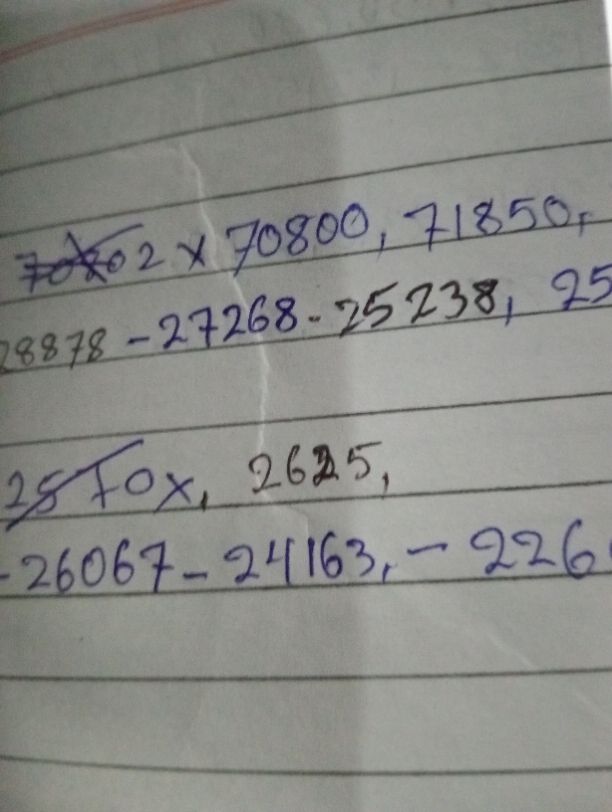 70802 x 70800, 71850,
28878 - 27268 - 25238, 25
2570x, 2625,
- 26067 - 24163, - 226